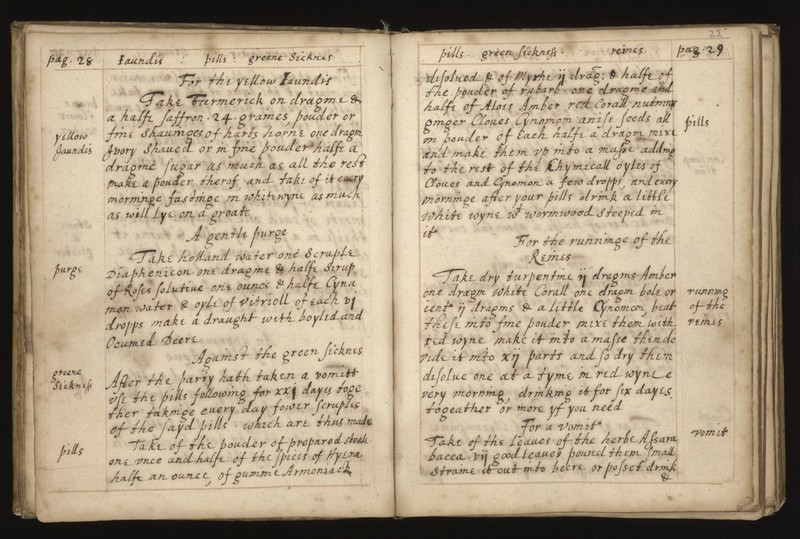 pag. 28 Iaundis : pills : greene Sicknes
For the yellow Iaundis
Take Turmerick on dragme &
a halfe saffron . 24 . graines, pouder or
fine shauinges of harts horne one dragm
yellow
Iaundis
Ivory shaued or in fine pouder halfe a
dragme sugar as much as all the rest
make a pouder therof and take of it euery
morninge fastinge in whitewyne as much
as will lye on a groate
A gentle purge
purge
Take holland water one scruple
Diaphenicon one dragme & halfe Sirup
of Roses solutiue one ounce & halfe Cyna
mon water & oyle of vitrioll of each vj
dropps make a draught with boyled and
Beere
Against the green sicknes
greene
Sickness
After the party hath taken a vomitt
vse the pills following for xxj dayes toge
ther takinge euery day fower scruples
of the sayd pills which are thus made
pills
Take of the pouder of prepared steele
one vnce and halfe of the spices of Hyera
halfe an ounce, of gumme Armoniack
22
pills . green sickness : reines pag. 29
disolued & of Myrhe ij drag: & halfe of
the pouder of rubarb one dragme and
halfe of Aloes Amber red Corall nutmigs
pills
ginger Cloues Cynomom anise seeds all
in pouder of Each halfe a dragm mixe
and make them vp into a masse adding
to the rest of the Chymicall oyles of
Cloues and Cynomon a few dropps, and euery
morninge after your pills drink a little
white wyne wt wormwood steeped in
it
For the runninge of the
Reines
Take dry turpentine ij dragms Amber
running
of the
reines
one dragm white Corall one dragm bole or
ient ij dragms & a little Cynomom, beat
these into fine pouder mixe them with
red wyne make it into a masse then de
vide it into xij parts and so dry them
disolue one at a tyme in red wyne e
very morning, drinking it for six dayes
togeather or more yf you need
For a vomit
vomit
Take of the Leaues of the herbe Assara
bacca vij good leaues pound them small
straine it out into beere or posset drink
&